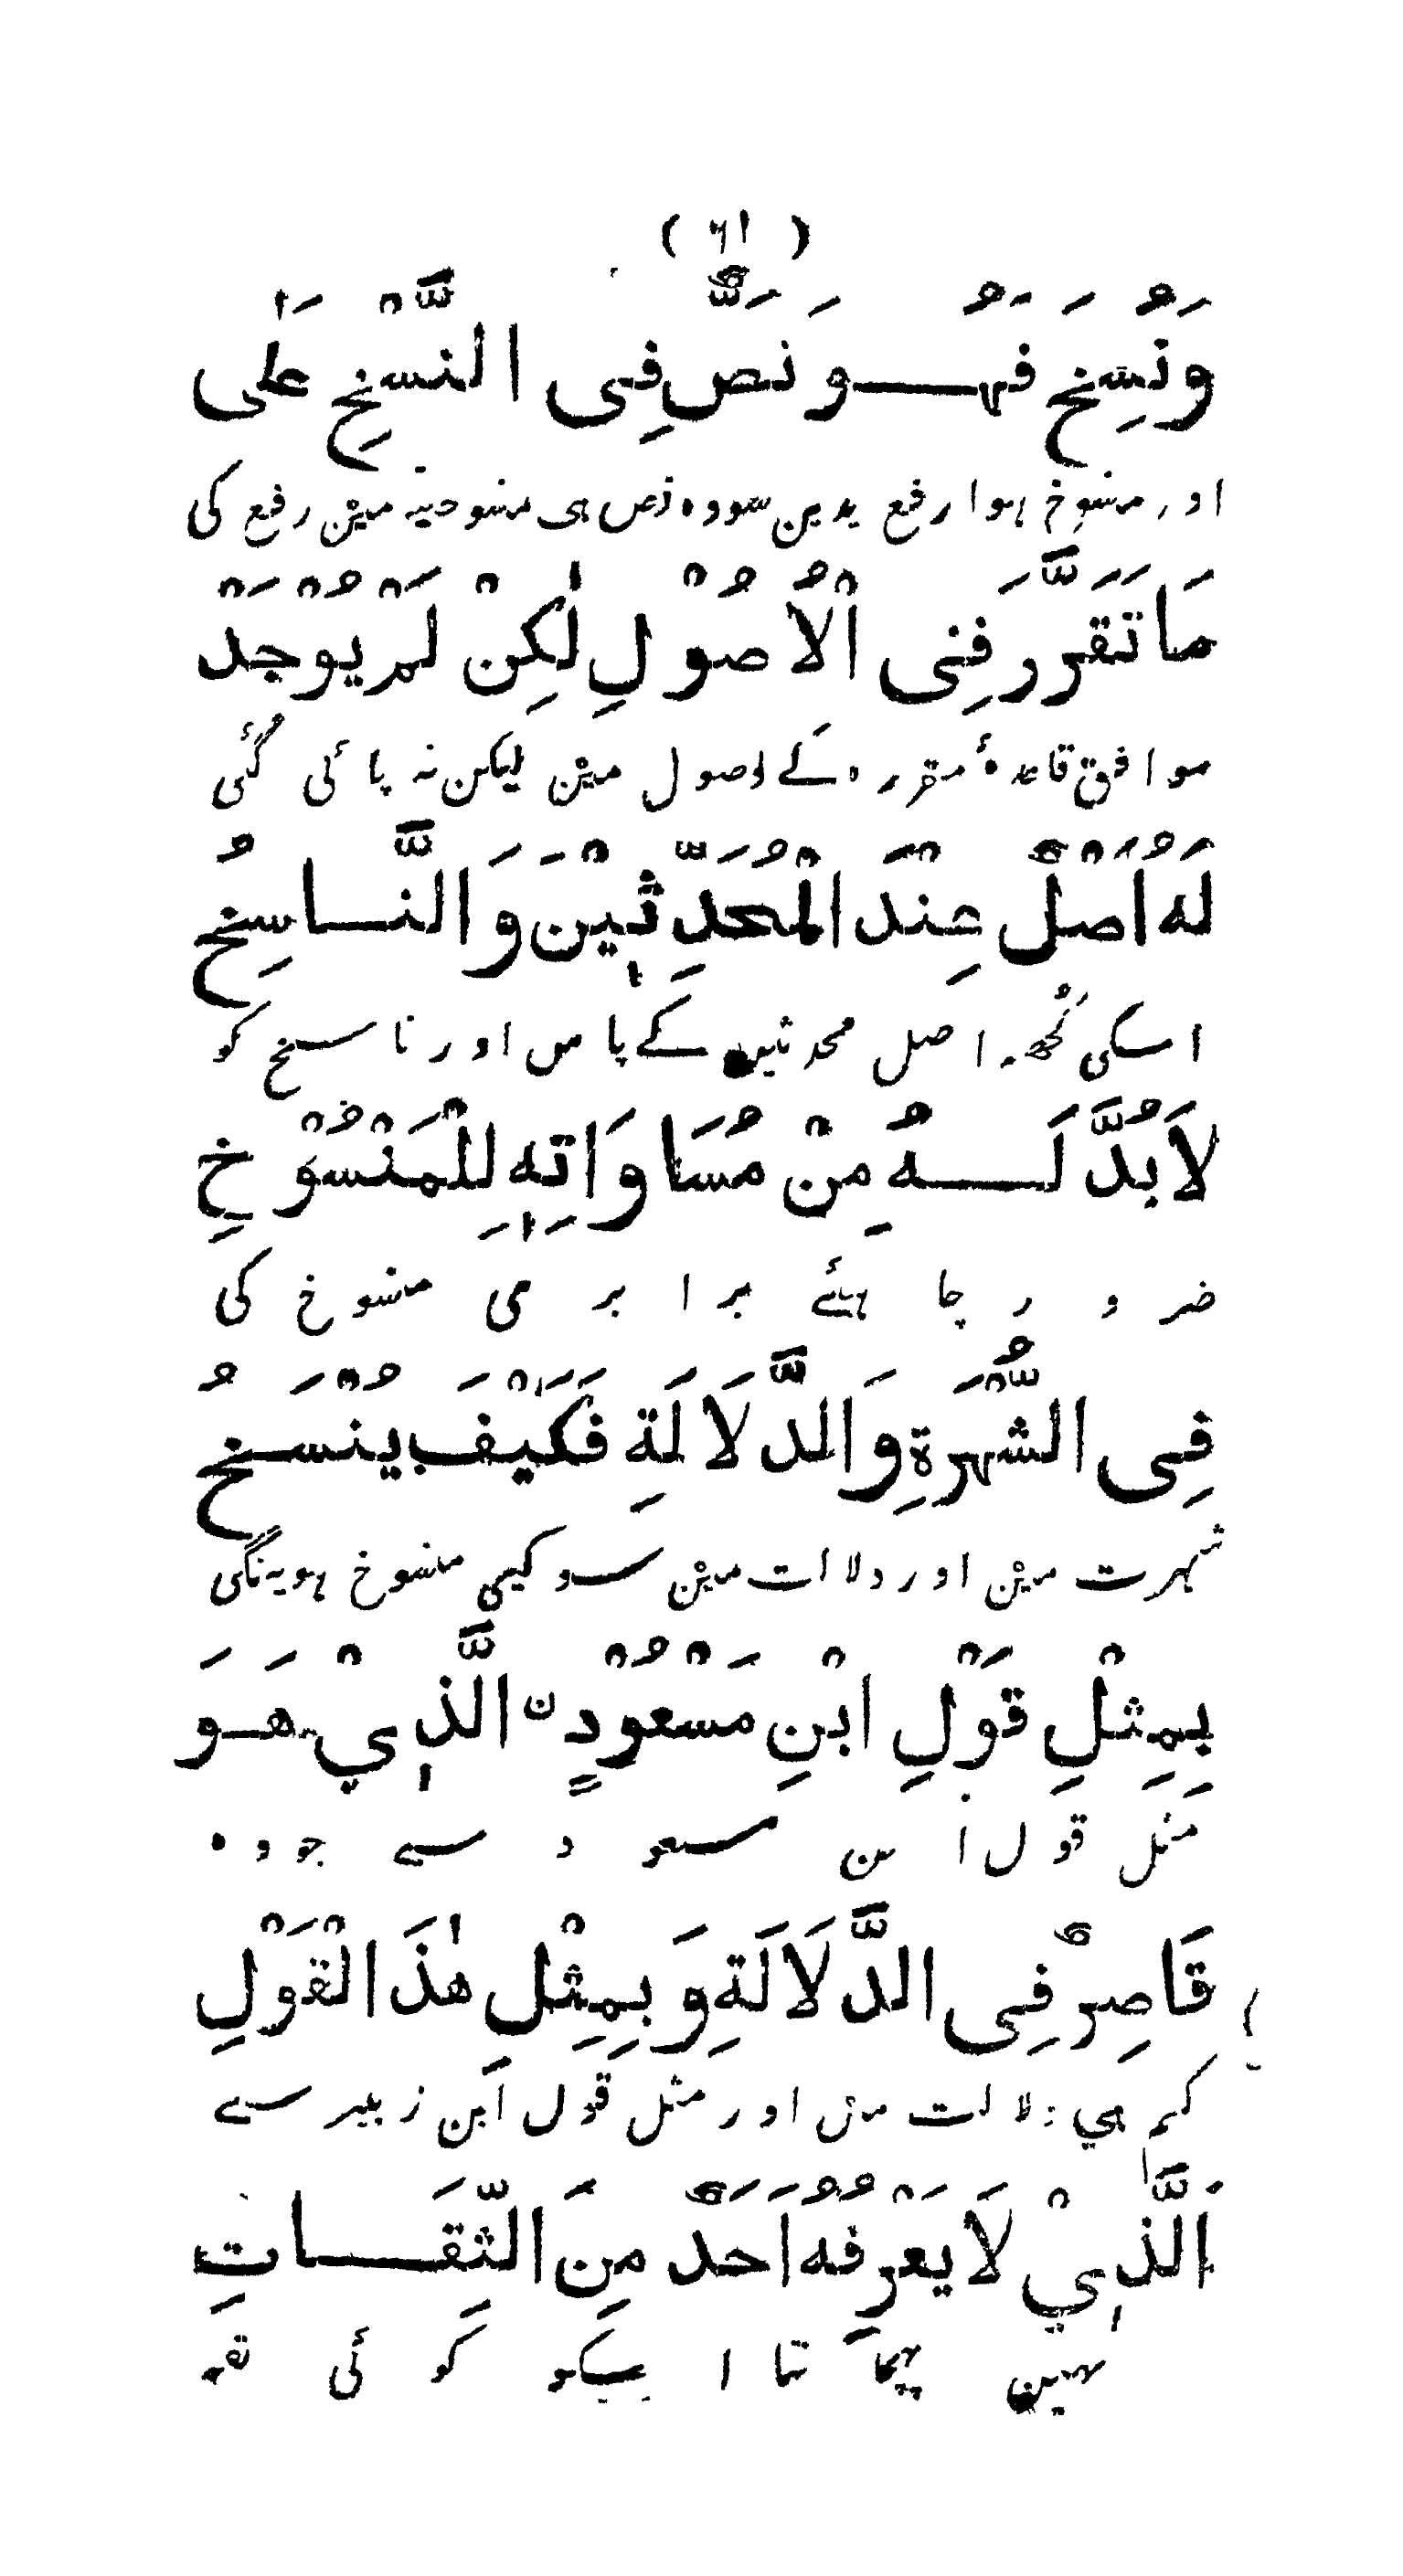 ( ٦١ )
وَنُسِخَ فَهُوَ نَصٌّ فِی النَّسْخِ عَلٰی
اور منسوخ ہوا رفع یدین سو وہ نص ہی منسوخیہ مین رفع کی
مَا تَقَرَّرَ فِی الْاُصُوْلِ لٰکِنْ لَمْ یُوْجَدْ
موافق قاعدهٔ مقرره کے اصول مین لیکن نہ پائی گئی
لَهُ اَصْلٌ عِنْدَ الْمُحَدِّثِیْنَ وَالنَّاسِخُ
اسکی کُچھ اصل محدثین کے پاس اور ناسخ کو
لَا بُدَّ لَهُ مِنْ مُسَاوَاتِهٖ لِلْمَنْسُوْخِ
ضرور چاہئے برابری منسوخ کی
فِی الشُّهْرَةِ وَالدَّلَالَةِ فَکَیْفَ یُنْسَخُ
شہرت مین اور دلالت مین سو کیسی منسوخ ہویہ نگی
بِمِثْلِ قَوْلِ ابْنِ مَسْعُوْدٍ ن الَّذِیْ هَوَ
مثل قول ابن مسعود سے جو وہ
قَاصِرٌ فِی الدَّلَالَةِ وَبِمِثْلِ هٰذَا الْقَوْلِ
کم ہی دلالت مین اور مثل قول ابن زبیر سے
اَلَّذِیْ لَا یَعْرِفُهُ اَحَدٌ مِنَ الثِّقَاتِ
نہین پہچانتا اسکو کوئی ثقہ